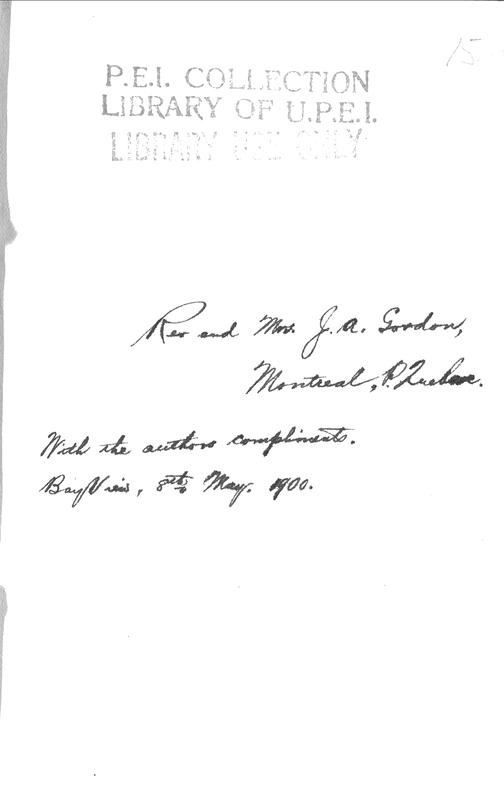 15
P.E.I. COLLECTION
LIBRARY OF U.P.E.I.
LIBRARY USE ONLY
Rev and Mrs. J. A. Gordon,
Montreal, P. Quebec.
With the authors compliments.
Bay View, 8th May. 1900.